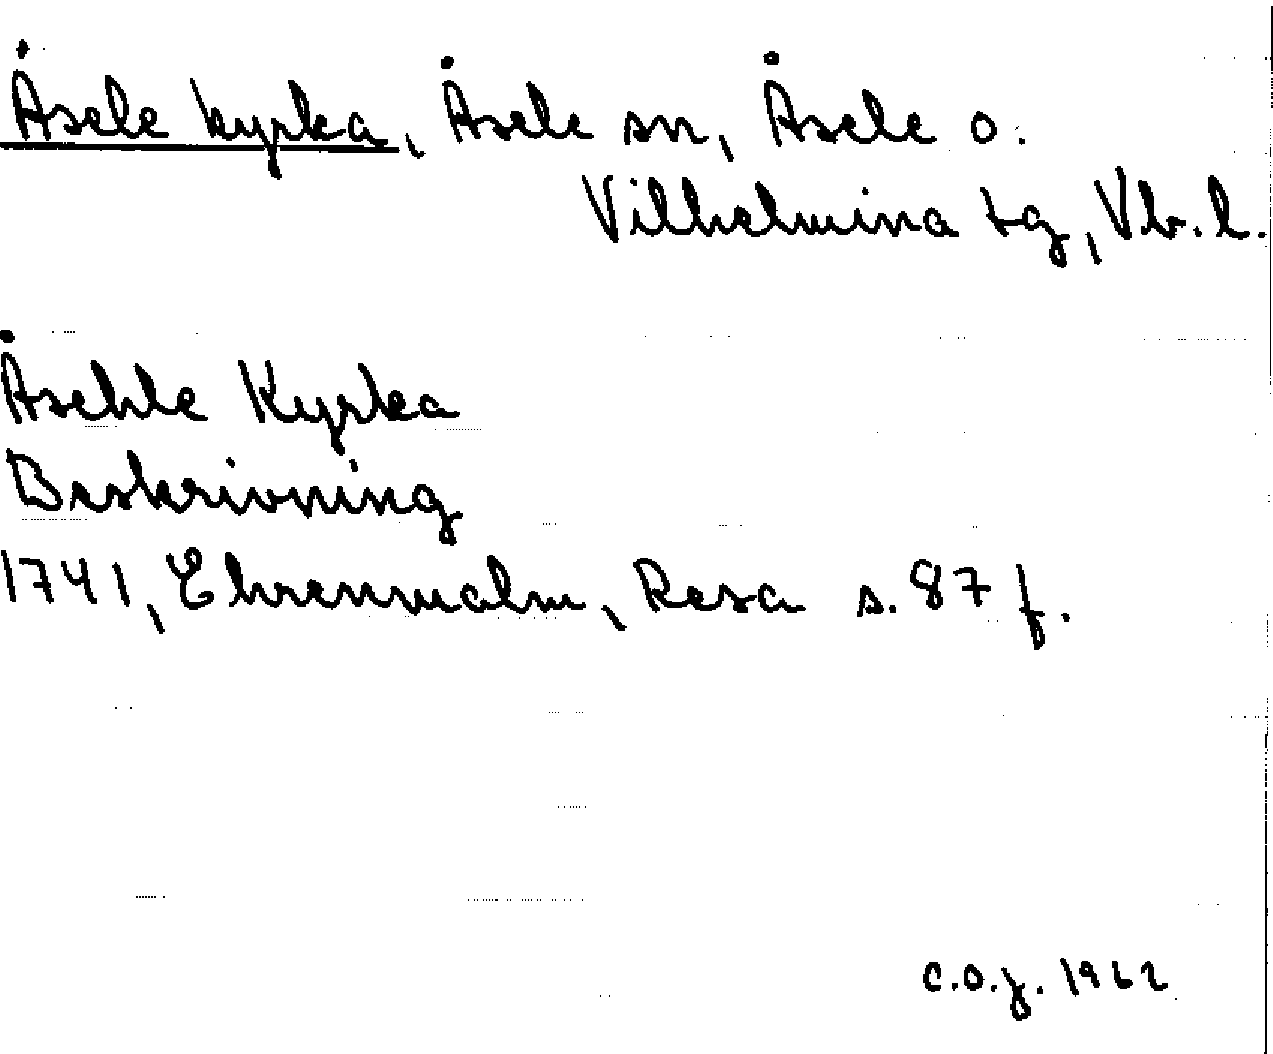 Åsele kyrka, Åsele sn, Åsele o.
Vilhelmina tg, Vb. l.
Åsehle Kyrka
Beskrivning
1741, Ehrenmalm, Resa s. 87 f.
C.O.J. 1962